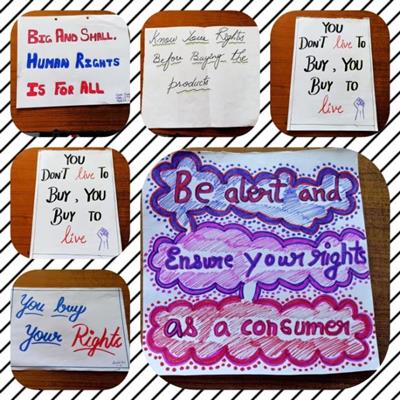 Big And Small,
Human Rights
Is For All
Know Your Rights
Before Buying the
products
You
Don't live To
Buy, You
Buy to
live
You
Don't live To
Buy, You
Buy to
live
You buy
Your Rights
Be alert and
Ensure your rights
as a consumer